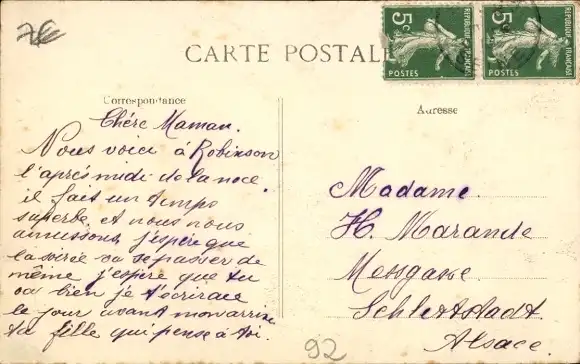 7€
CARTE POSTALE
5c
REPUBLIQUE FRANÇAISE
POSTES
5c
REPUBLIQUE FRANÇAISE
POSTES
Correspondance
Chére Maman.
Nous voici à Robinson
l'aprés midi de la noce.
il fait un temps
superbe et nous nous
amussons, j'espére que
la soirée va se passer de
même j'espére que tu
va bien je t'écrirace
le jour avant mon arrive
ta fille qui pense à toi.
Adresse
Madame.
H. Marande
Messgasse
Schlettstadt.
Alsace.
92